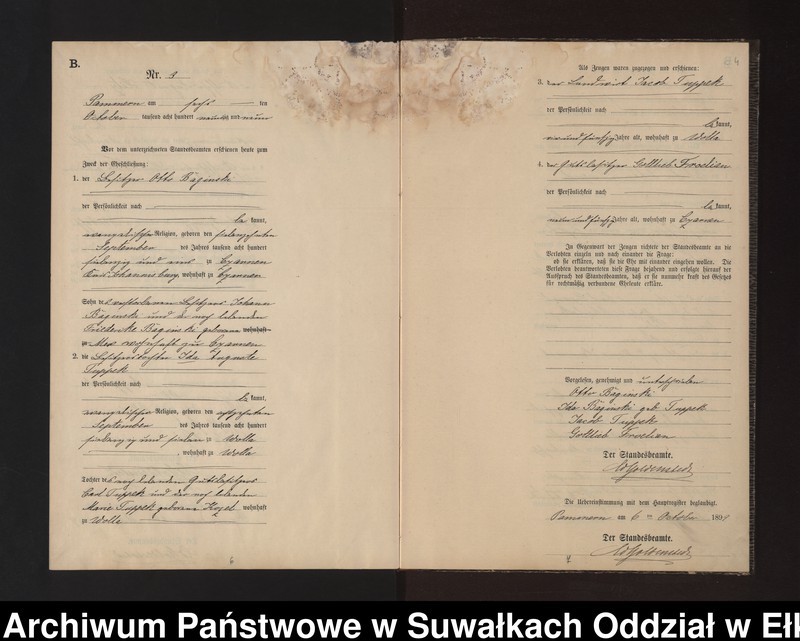 B.
Nr. 9
am sechs ten
October tausend acht hundert neunzig und neun
Vor dem unterzeichneten Standesbeamten erschienen heute zum
Zweck der Eheschließung:
1. der Besitzer Otto Baginski
der Persönlichkeit nach
be kannt,
evangelischer Religion, geboren den siebenzehnten
September des Jahres tausend acht hundert
siebenzig und eins zu Czyannen
Kreis Johannisburg, wohnhaft zu Czyannen
Sohn des verstorbenen Besitzers Johann
Baginski und der noch lebenden
Friederike Baginski geborene wohnhaft
zu wohnhaft zu Czyannen
2. die Besitzertochter Ida Auguste
Tuppek
der Persönlichkeit nach
be kannt,
evangelischer Religion, geboren den achtzehnten
September des Jahres tausend acht hundert
siebenzig und sieben zu Wolla
, wohnhaft zu Wolla
Tochter des noch lebenden Gutsbesitzers
Carl Tuppek und der noch lebenden
Marie Tuppek geborene Kozel wohnhaft
zu Wolla
6
Als Zeugen waren zugezogen und erschienen:
3. der Landwirt Jacob Tuppek
der Persönlichkeit nach
be kannt,
und fünfzig Jahre alt, wohnhaft zu Wolla
4. der Gutsbesitzer Gottlieb Froelian
der Persönlichkeit nach
be kannt,
neun und fünfzig Jahre alt, wohnhaft zu Czyannen
In Gegenwart der Zeugen richtete der Standesbeamte an die
Verlobten einzeln und nach einander die Frage:
ob sie erklären, daß sie die Ehe mit einander eingehen wollen. Die
Verlobten beantworteten diese Frage bejahend und erfolgte hierauf der
Ausspruch des Standesbeamten, daß er sie nunmehr kraft des Gesetzes
für rechtmäßig verbundene Eheleute erkläre.
Vorgelesen, genehmigt und unterschrieben
Otto Baginski
Ida Baginski geb Tuppek
Jacob Tuppek
Gottlieb Froelian
Der Standesbeamte.
Die Uebereinstimmung mit dem Hauptregister beglaubigt.
am 6 ten October 1899
Der Standesbeamte.
Archiwum Państwowe w Suwałkach Oddział w Eł